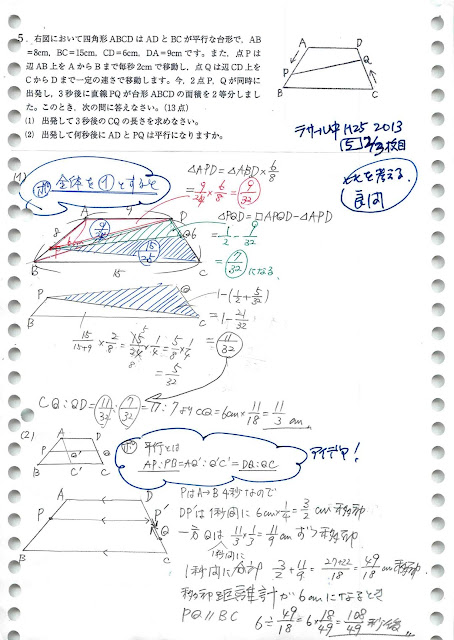 5. 右図において四角形ABCDはADとBCが平行な台形で、AB
=8cm, BC=15cm, CD=6cm, DA=9cmです。また、点Pは
辺AB上をAからBまで毎秒2cmで移動し、点Qは辺CD上を
CからDまで一定の速さで移動します。今、2点P, Qが同時に
出発し、3秒後に直線PQが台形ABCDの面積を2等分しまし
た。このとき、次の問に答えなさい。(13点)
(1) 出発して3秒後のCQの長さを求めなさい。
(2) 出発して何秒後にADとPQは平行になりますか。
A D
P Q
B C
ラ・サール中 H25 2013
5 2/3枚目
比を考える
良問
(1)
ポ 全体を①とすると
△APD=△ABD×6/8
=9/24×6/8=9/32
△PQD=□APQD-△APD
=1/2-9/32
=7/32になる
A 9 D
8 6cm 9/24 Q 6
15/24
B 15 C
P Q
B C
15/15+9×2/8=15/24×1/4=5/8×1/4
=5/32
1-(1/2+5/32)
=1-21/32
=11/32
CQ:QD=11/32:7/32=11:7より CQ=6cm×11/18=11/3cm
(2)
A D
P Q' Q
B C' C
ポ 平行とは
AP:PB=AQ':Q'C'=DQ:QC
アイデア!
A D
P P'
Q
B C
PはA→B 4秒なので
DP'は1秒間に6cm×1/4=3/2cm移動
一方Qは11/3×1/3=11/9cmずつ移動
1秒間に
1秒間に 3/2+11/9=27+22/18=49/18cm移動
移動距離計が6cmになるとき
PQ//BC 6÷49/18=6×18/49=108/49秒後